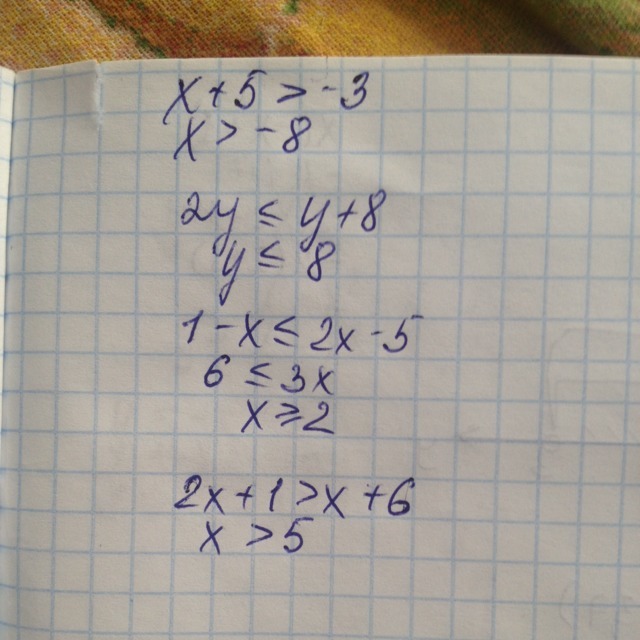 x + 5 > -3
x > -8
2y ≤ y + 8
y ≤ 8
1 - x ≤ 2x - 5
6 ≤ 3x
x ≥ 2
2x + 1 > x + 6
x > 5